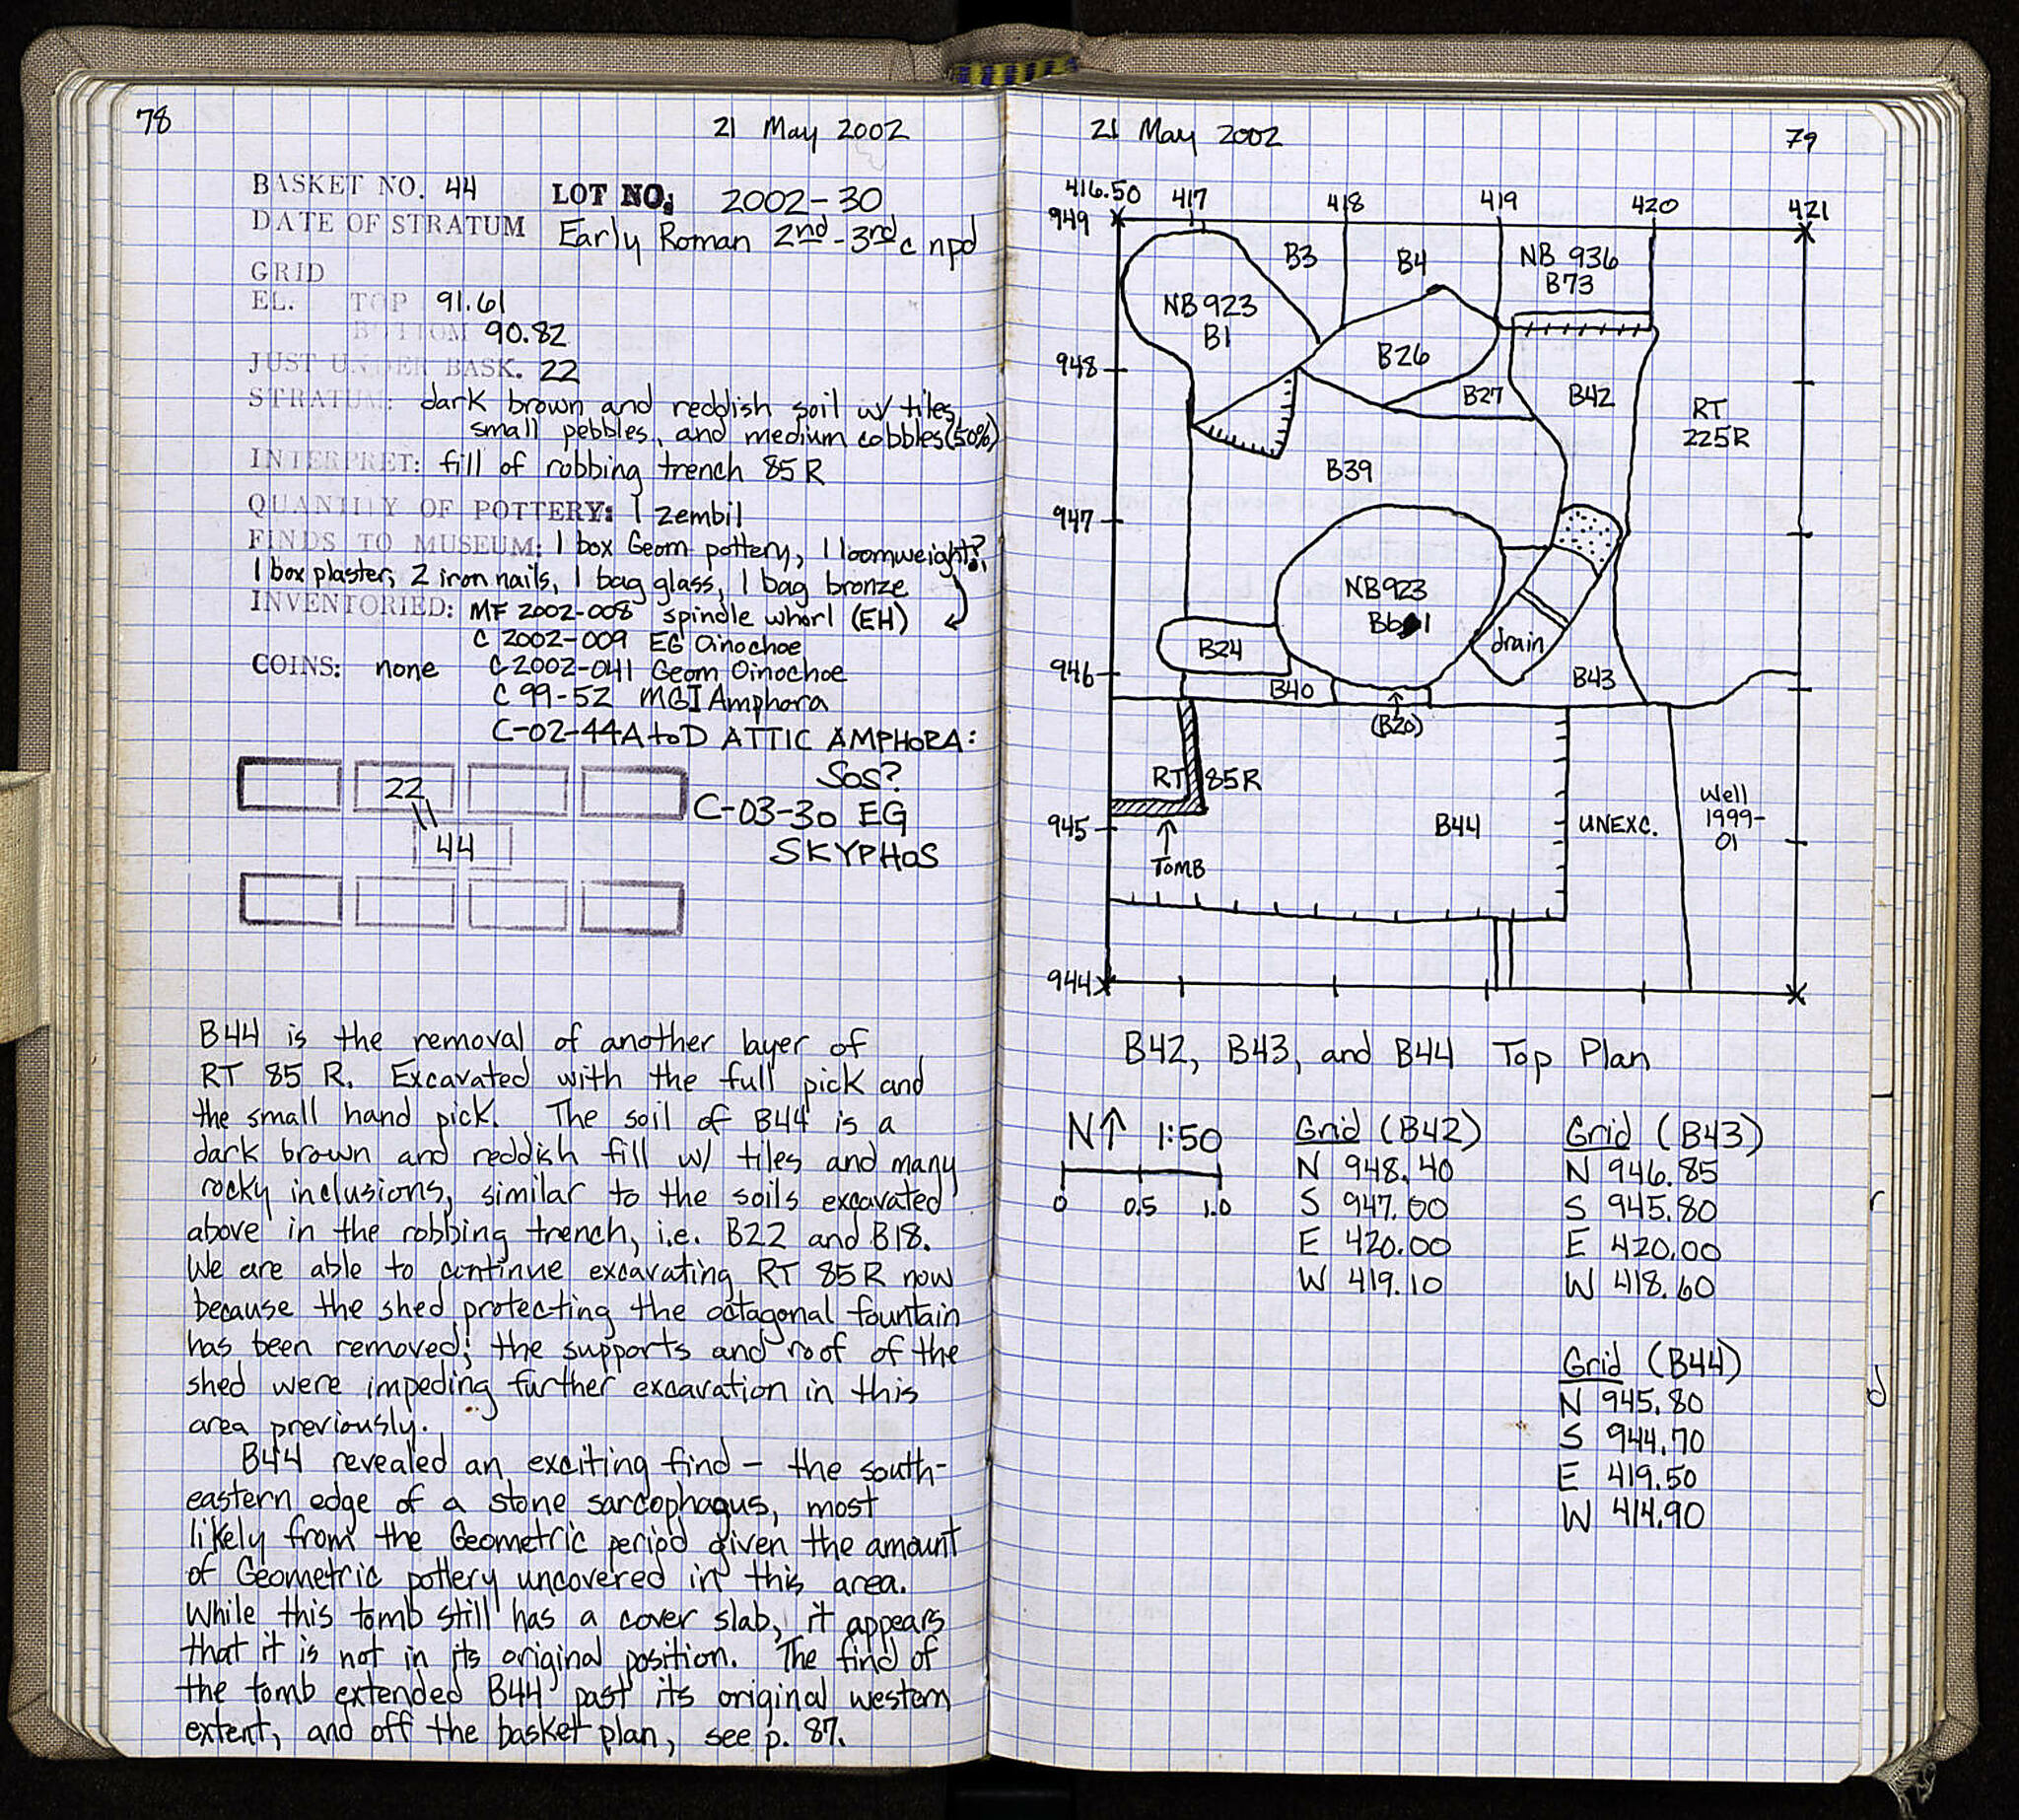 78
21 May 2002
BASKET NO. 44 LOT NO: 2002-30
DATE OF STRATUM Early Roman 2nd-3rd c npd
GRID
EL. TOP 91.61
BOTTOM 90.82
JUST UNDER BASK. 22
STRATUM: dark brown and reddish soil w/ tiles,
small pebbles, and medium cobbles (50%)
INTERPRET: fill of robbing trench 85 R
QUANTITY OF POTTERY: 1 zembil
FINDS TO MUSEUM: 1 box Geom pottery, 1 loomweight?,
1 box plaster, 2 iron nails, 1 bag glass, 1 bag bronze
INVENTORIED: MF 2002-008 spindle whorl (EH)
C 2002-009 EG Oinochoe
COINS: none C 2002-041 Geom Oinochoe
C 99-52 MGI Amphora
C-02-44A to D ATTIC AMPHORA:
SOS?
22
C-03-30 EG
44
SKYPHOS
B44 is the removal of another layer of
RT 85 R. Excavated with the full pick and
the small hand pick. The soil of B44 is a
dark brown and reddish fill w/ tiles and many
rocky inclusions, similar to the soils excavated
above in the robbing trench, i.e. B22 and B18.
We are able to continue excavating RT 85R now
because the shed protecting the octagonal fountain
has been removed; the supports and roof of the
shed were impeding further excavation in this
area previously.
B44 revealed an exciting find - the south-
eastern edge of a stone sarcophagus, most
likely from the Geometric period given the amount
of Geometric pottery uncovered in this area.
While this tomb still has a cover slab, it appears
that it is not in its original position. The find of
the tomb extended B44 past its original western
extent, and off the basket plan, see p. 87.
21 May 2002
79
416.50 417 418 419 420 421
949
B3 B4 NB 936
B73
NB 923
B1
B26
948
B27 B42
RT
225R
B39
947
NB923
B1
drain
B24
946
B40 B43
(B20)
RT 85R
Well
1999-
01
945
B44 UNEXC.
TOMB
944
B42, B43, and B44 Top Plan
N↑ 1:50
0 0.5 1.0
Grid (B42)
N 948.40
S 947.00
E 420.00
W 419.10
Grid (B43)
N 946.85
S 945.80
E 420.00
W 418.60
Grid (B44)
N 945.80
S 944.70
E 419.50
W 414.90